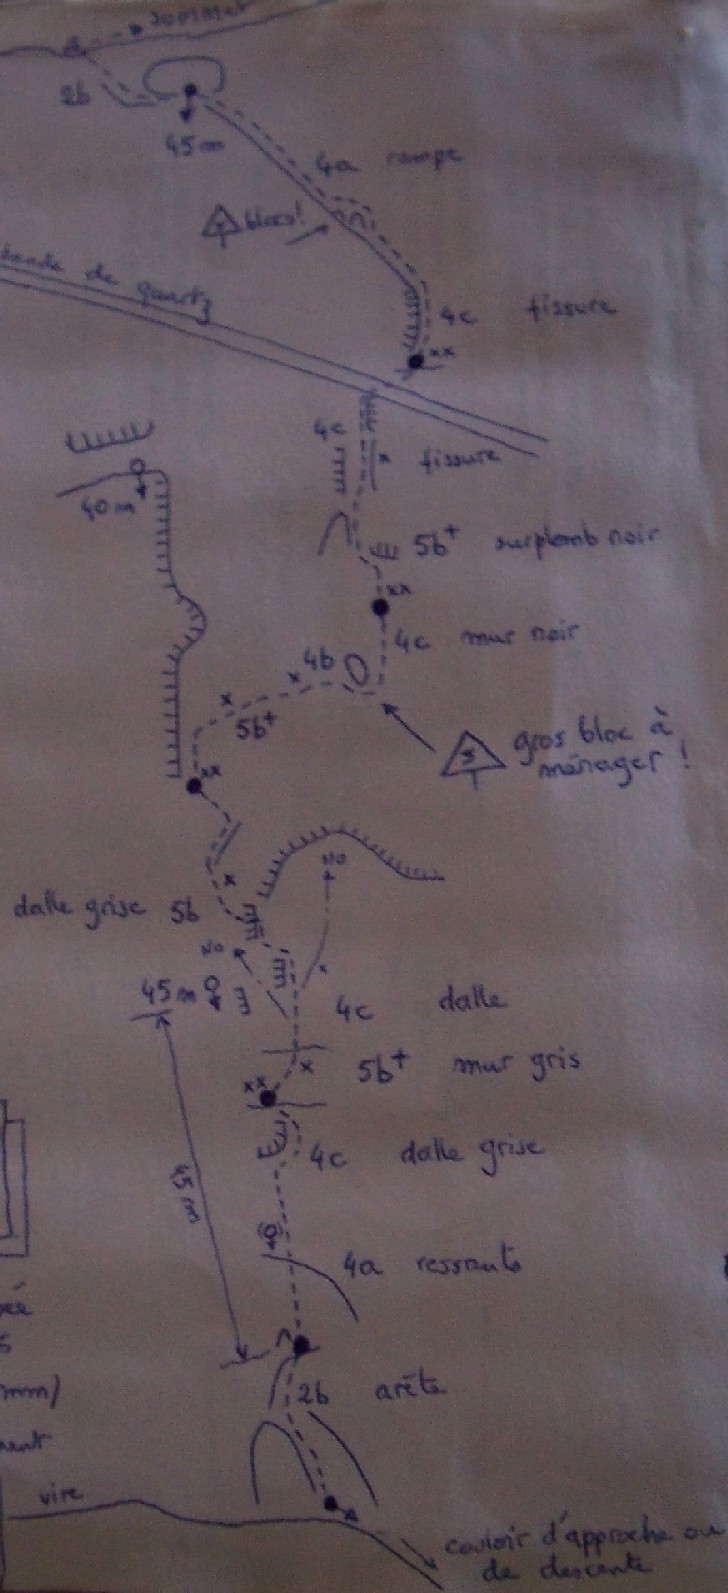 sommet
2b
45m
4a rampe
blocs!
bande de quartz
4c fissure
xx
4c
x fissure
40m
5b+ surplomb noir
xx
4c mur noir
4b
x
x
5b+
gros bloc à
ménager !
xx
NO
x
dalle grise 5b
NO
x
45m
4c dalle
x
5b+ mur gris
xx
4c dalle grise
45m
4a ressauts
2b arête
mm)
vire
couloir d'approche ou
de descente